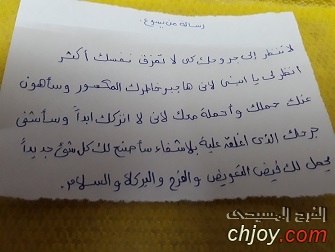 رسالة من يسوع
لا تنظر إلى جروحك كى لا تفرق نفسك أكثر
انظر لى يا ابنى لانى هاجبر خاطرك المكسور وسأهون
عنك حملك وأحمله معك لانى لا اتركك ابداً وسأشفى
جرحك الذى اغلقه عليه بالشفاء سأصنع لك كل شئ جديداً
يحمل لك فيض التعويض والفرح والبركة والسلام.
الفرح المسيحى
chjoy.com